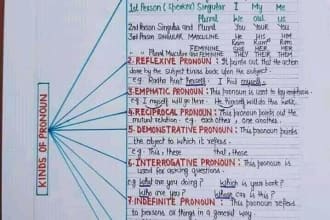 1st Person (Speaker) Singular I My Me
Plural We our us
2nd Person Singular and Plural You Your You
3rd Person SINGULAR MASCULINE HE HIS HIM
FEMININE SHE HER HER
Plural Masculine and FEMININE THEY THEIR THEM
KINDS OF PRONOUN
2- REFLEXIVE PRONOUN: It points out that the action
done by the subject turns back upon the subject.
e.g. Radha hurt herself. I find myself.
3. EMPHATIC PRONOUN: This pronoun is used to lay emphasis.
e.g. I myself will go there. He himself will do this work.
4. RECIPROCAL PRONOUN: This pronoun points out the
mutual relation. e.g. each other, one another.
5- DEMONSTRATIVE PRONOUN: This pronoun points
the object to which it refers.
e.g. This, these that, those
6. INTERROGATIVE PRONOUN: This pronoun is
used for asking questions.
e.g. What are you doing? Which is your book?
Who are you? Whose car is this?
7- INDEFINITE PRONOUN: This pronoun refers
to persons or things in a general way.